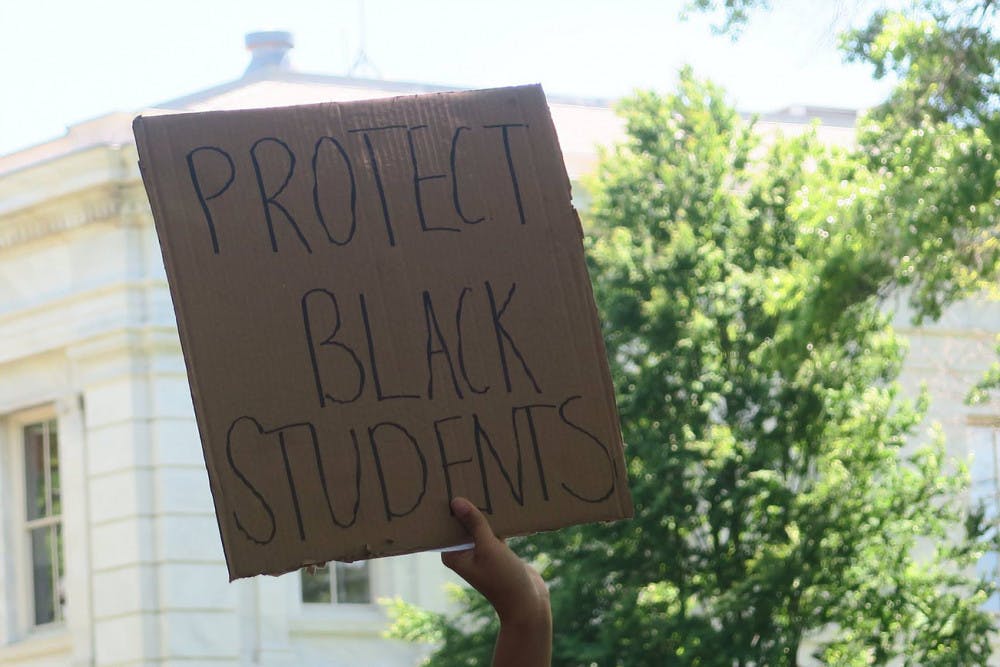 PROTECT
BLACK
STUDENTS